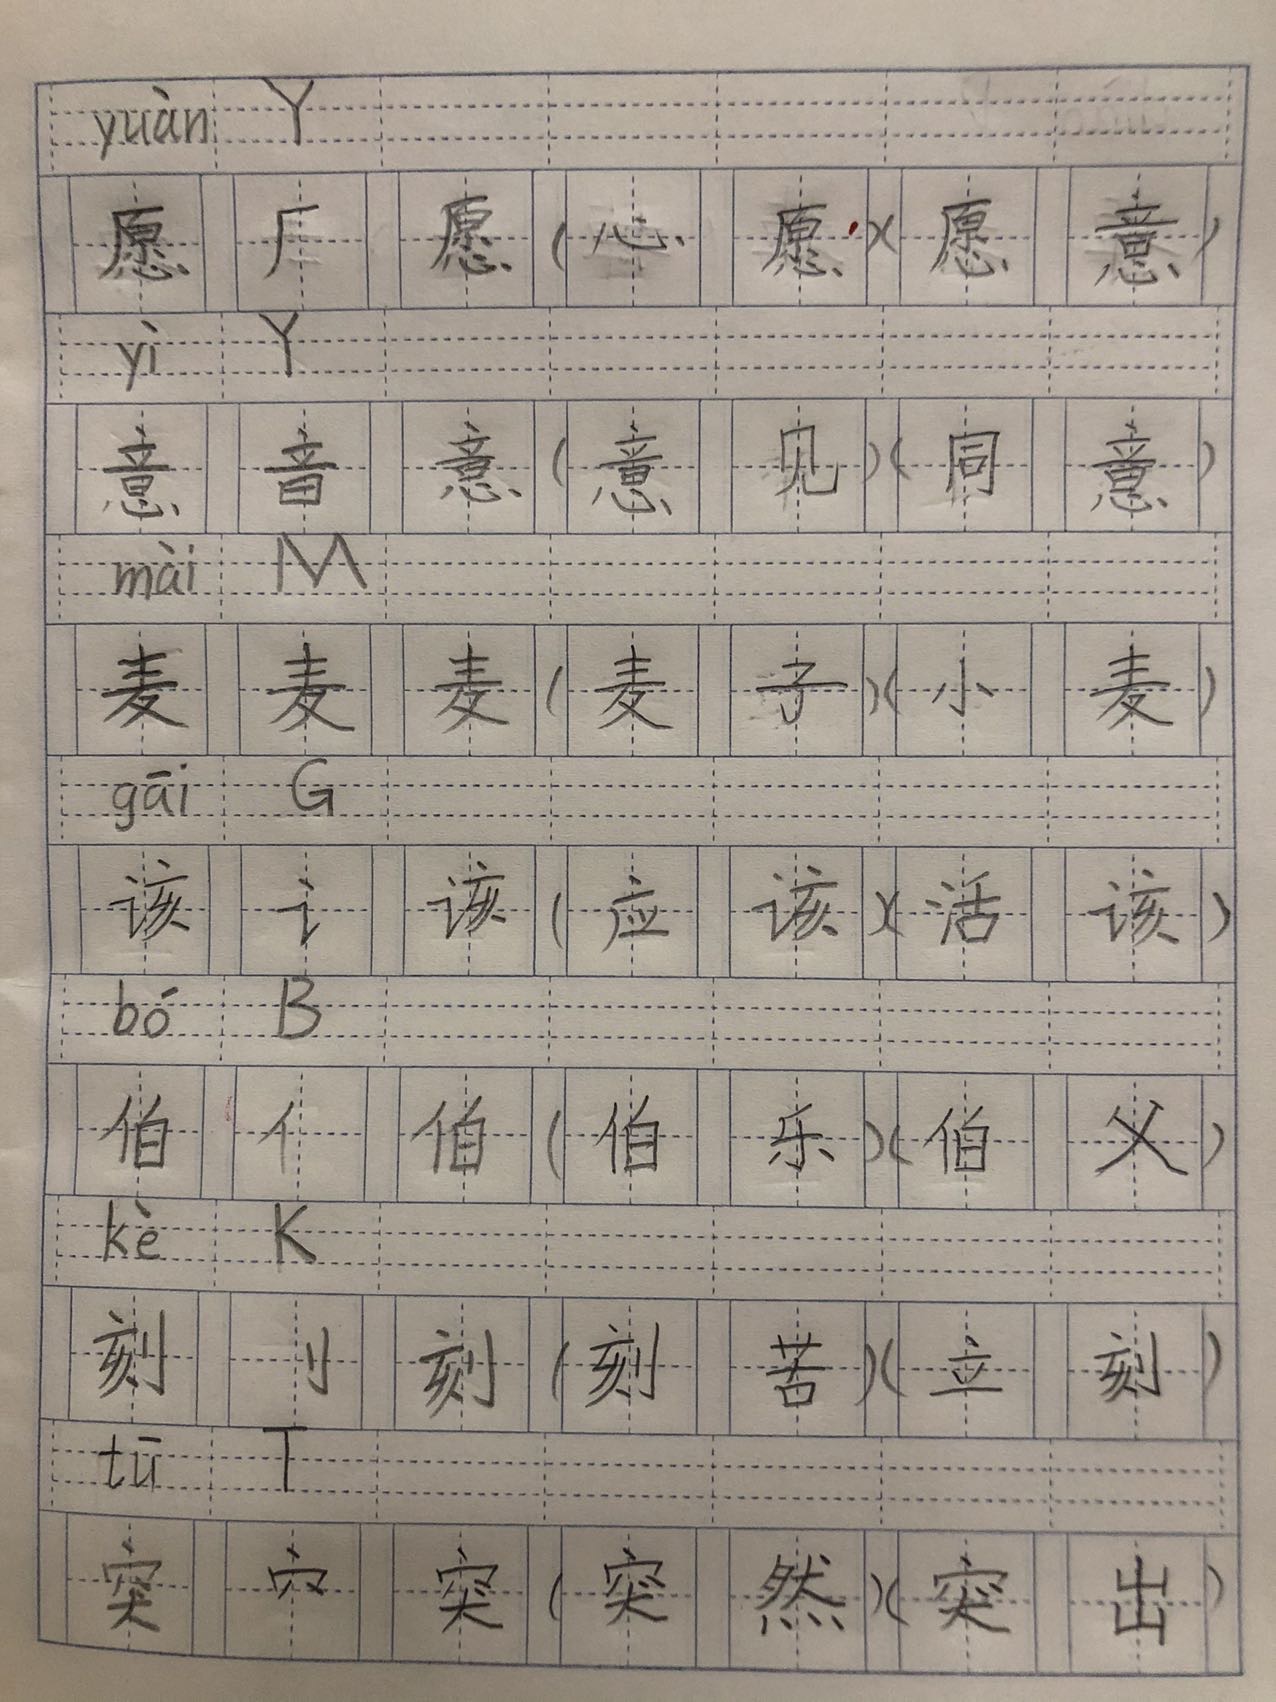 yuàn Y
愿 厂 愿 (心 愿)(愿 意)
yì Y
意 音 意 (意 见)(同 意)
mài M
麦 麦 麦 (麦 子)(小 麦)
gāi G
该 讠 该 (应 该)(活 该)
bó B
伯 亻 伯 (伯 乐)(伯 父)
kè K
刻 刂 刻 (刻 苦)(立 刻)
tū T
突 穴 突 (突 然)(突 出)